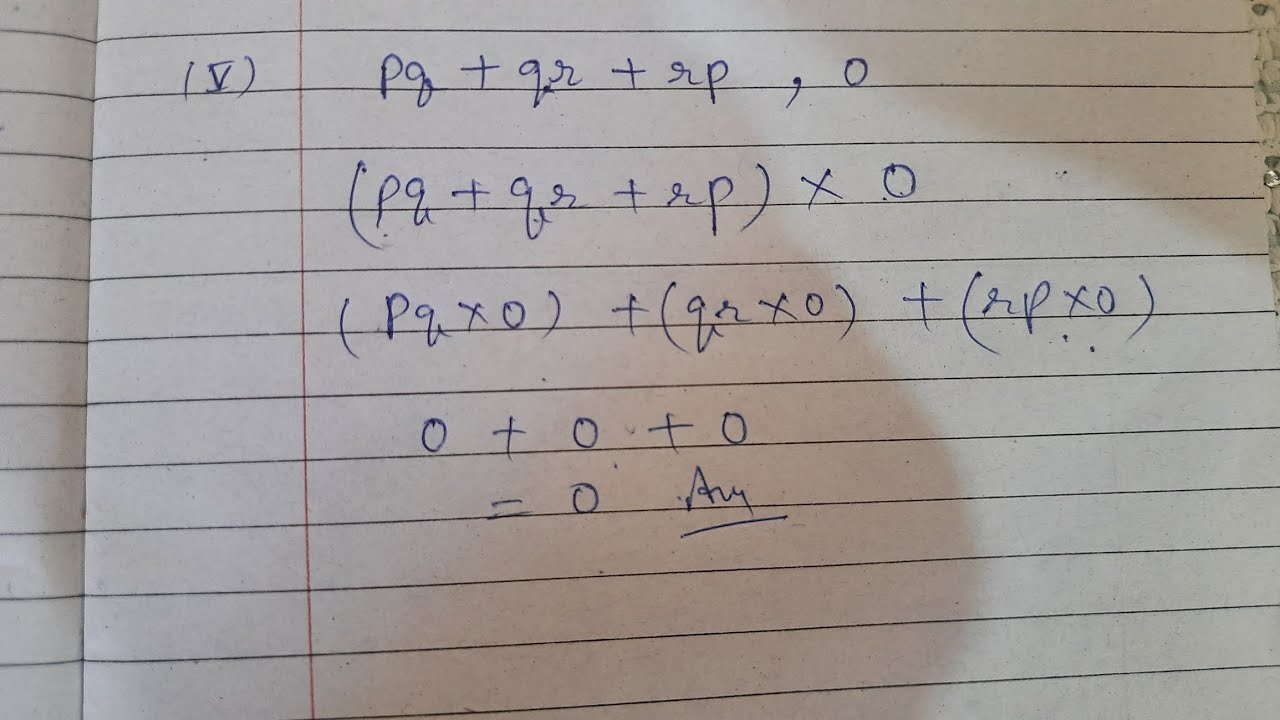 (V) pq + qr + rp , 0
(pq + qr + rp) × 0
(pq × 0) + (qr × 0) + (rp × 0)
0 + 0 + 0
= 0 Ans